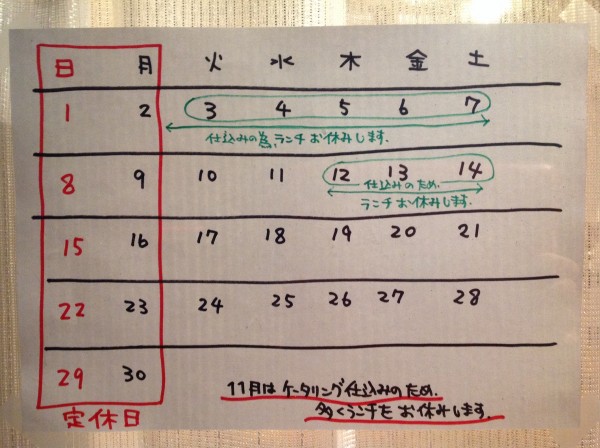 日 月 火 水 木 金 土
1 2 3 4 5 6 7
仕込みの為、ランチお休みします.
8 9 10 11 12 13 14
仕込みのため.
ランチお休みします.
15 16 17 18 19 20 21
22 23 24 25 26 27 28
29 30
11月はケータリング仕込みのため.
多くランチをお休みします.
定休日